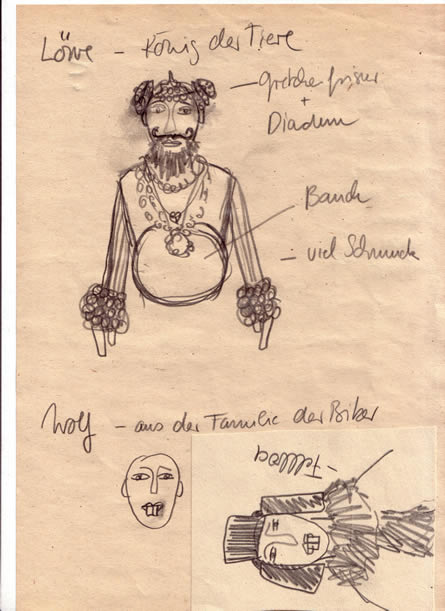 Löwe – König der Tiere
– gretchenfrisur
+
Diadem
Bauch
– viel Schmuck
Wolf – aus der Familie der Biber